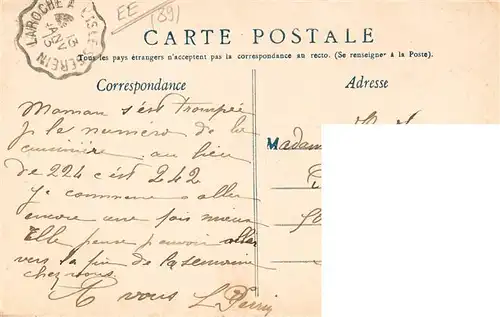 LAROCHE A L'ISLE-S-SEREIN
13
JANV
13
EE
(89)
CARTE POSTALE
Tous les pays étrangers n'acceptent pas la correspondance au recto. (Se renseigner à la Poste).
Correspondance
Adresse
Maman s'est trompée
le numero de la
cuisinière au lieu
de 224 c'est 242
Je commence a aller
encore une fois mieux
Elle pense pouvoir aller
vers la fin de la semaine
chez vous
A vous L Perrin
Madam